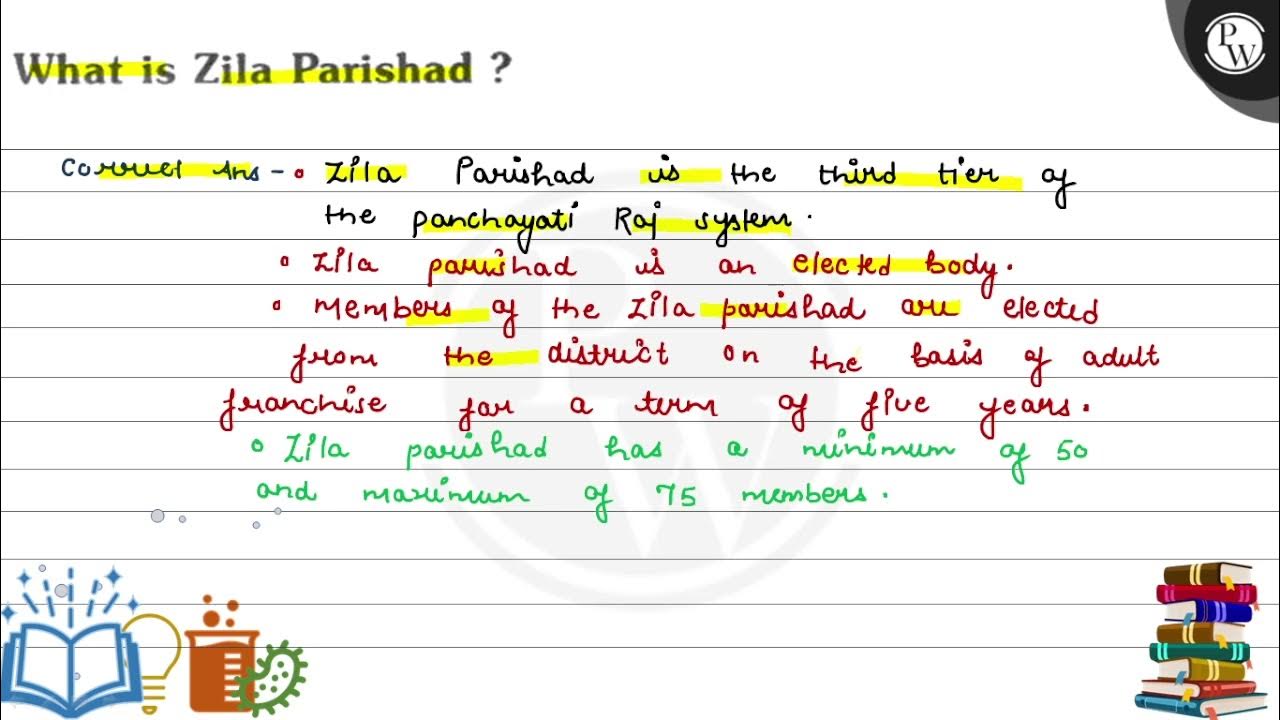 What is Zila Parishad ?
PW
Correct Ans - • Zila Parishad is the third tier of
the panchayati Raj system.
• Zila parishad is an elected body.
• Members of the Zila parishad are elected
from the district on the basis of adult
franchise for a term of five years.
• Zila parishad has a minimum of 50
and maximum of 75 members.